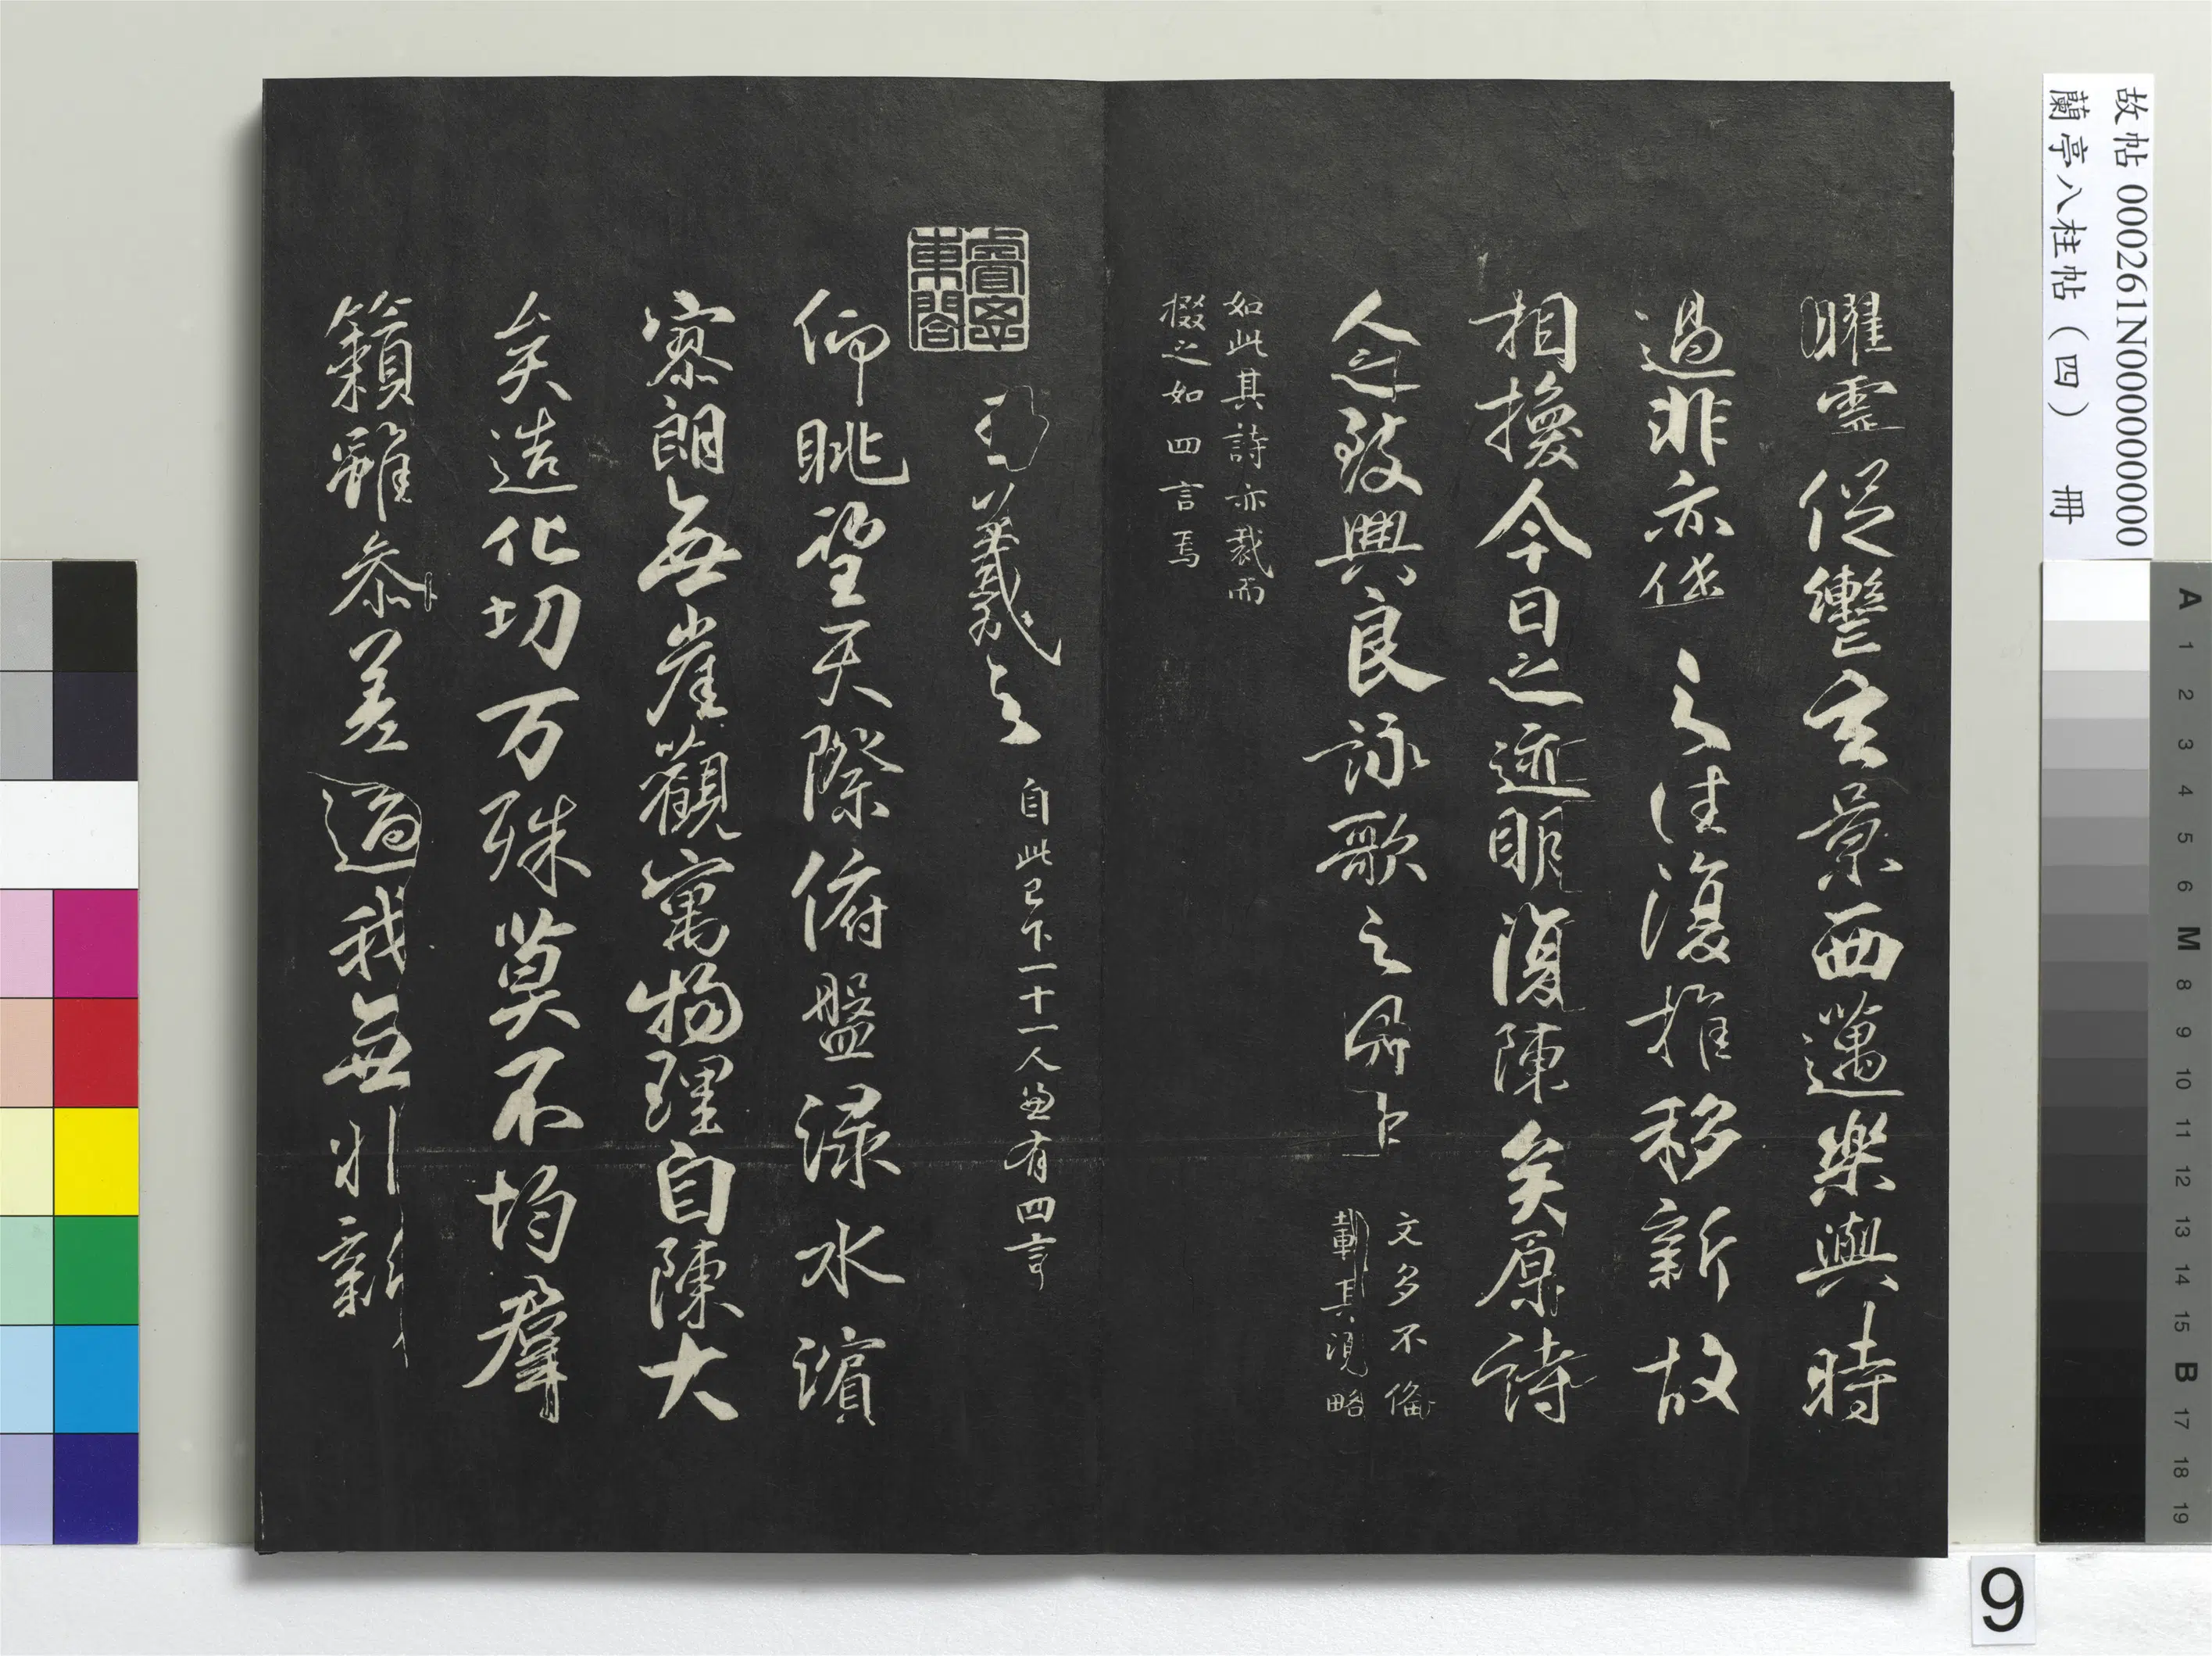 故帖 000261N000000000
蘭亭八柱帖（四） 冊
曜靈促轡玄景西邁樂與時
過非亦係之往復推移新故
相換今日之迹明復陳矣原詩
人之致興良詠歌之
文多不備
載其 略
如此其詩亦裁而
掇之如四言焉
睿思東閣
羲之 自此已下一十一人 有四言
仰眺望天際俯盤淥水濱
寥朗無崖觀寓物理自陳大
矣造化切万殊莫不均羣
籟雖参差適我無非新
A 1 2 3 4 5 6 M 8 9 10 11 12 13 14 15 B 17 18 19
9